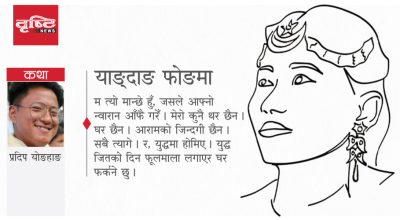 वृष्टि
NEWS
कथा
याङ्दाङ फोङमा
म त्यो मान्छे हुँ, जसले आफ्नो
न्वारान आँफै गरेँ । मेरो कुनै थर छैन ।
घर छैन । आरामको जिन्दगी छैन ।
सबै त्यागे । र, युद्धमा होमिए । युद्ध
जितको दिन फूलमाला लगाएर घर
फर्कने छु ।
प्रदिप योङहाङ